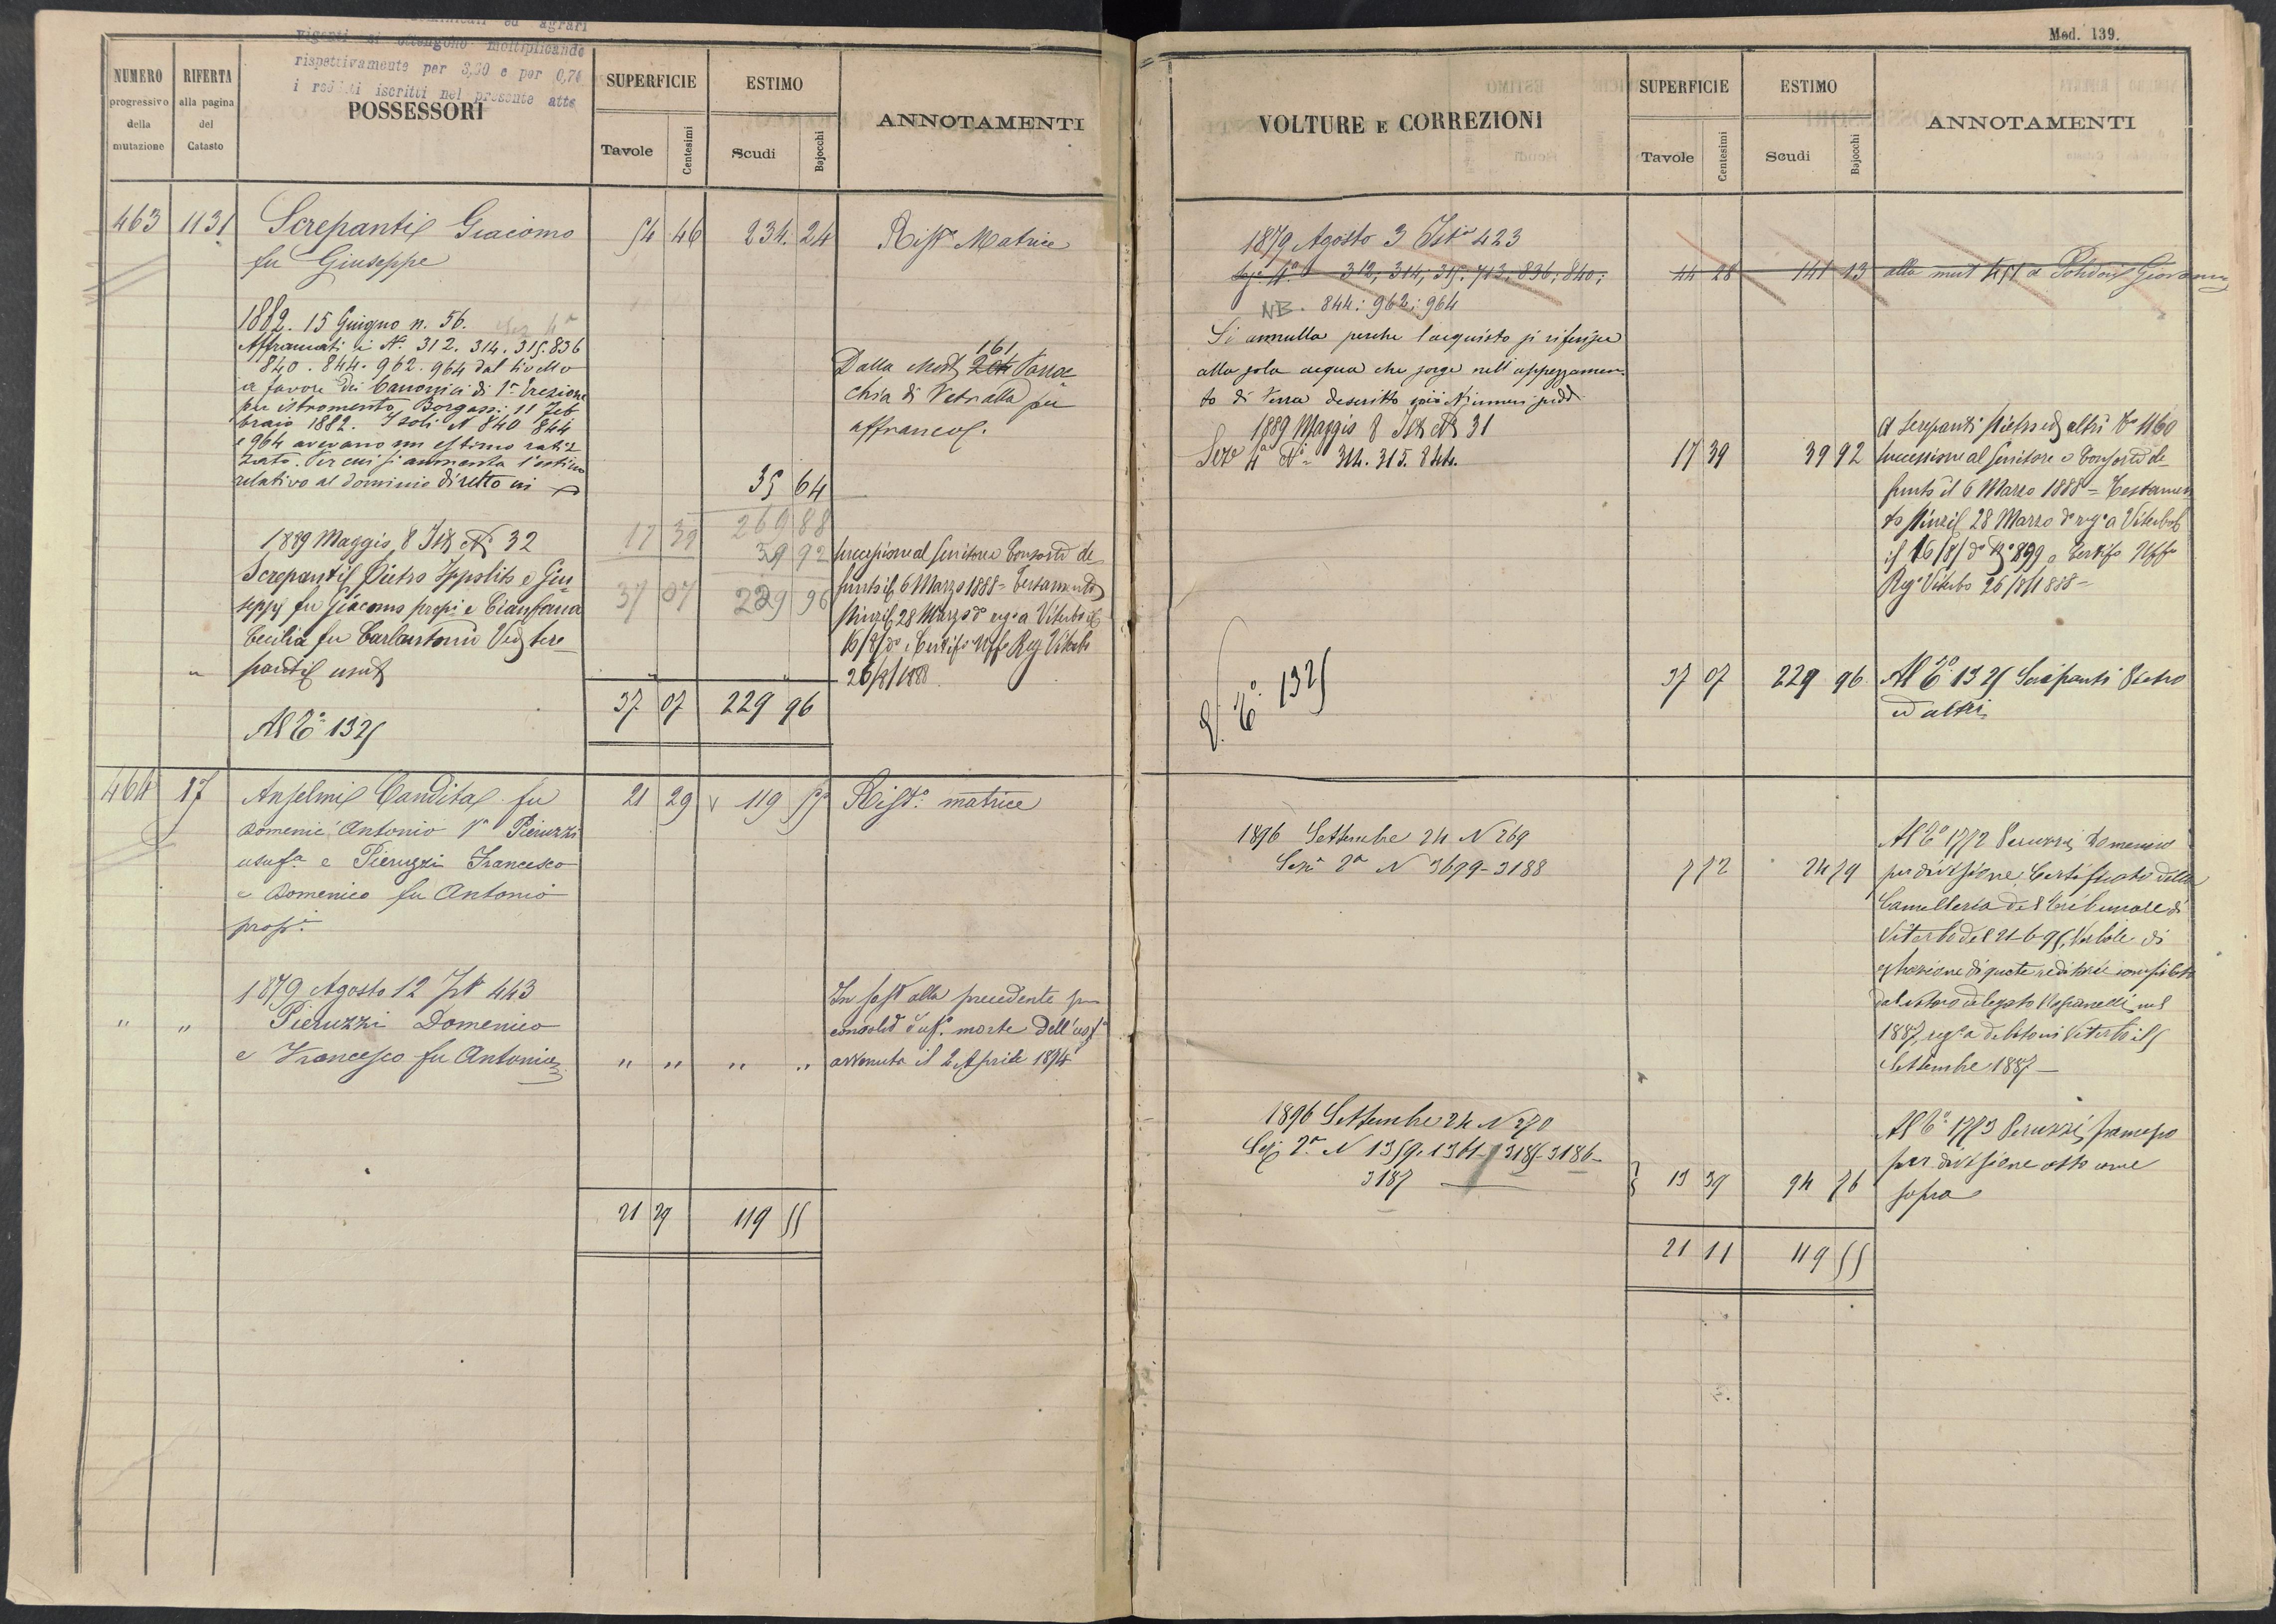 agrari
vigenti si ottengono moltiplicando
rispettivamente per 3,50 e per 0,70
i redditi iscritti nel presente atto
NUMERO
progressivo
della
mutazione
RIFERTA
alla pagina
del
Catasto
POSSESSORI
SUPERFICIE
Tavole
Centesimi
ESTIMO
Scudi
Bajocchi
ANNOTAMENTI
463 1131 Screpanti Giacomo 54 46 234. 24 Rist° Matrice
fu Giuseppe
1882. 15 Giugno n. 56. Sez 4a
Affrancati i Ni 312. 314. 315. 836
840. 844. 962. 964 dal livello
a favore dei Canonici di 1a Erezione
per istromento Borgassi 11 Feb
braio 1882. I soli N 840 844
e 964 avevano un estimo ratiz
zato. Per cui si aumenta l'estimo
relativo al dominio diretto in
35 64
269 88
Dalla Mut 161 Parroc
chia di Vetralla per
affrancaz.
1889 Maggio 8 Ist N 32 17 39 39 92
Screpanti Pietro Ippolito e Giu
seppe fu Giacomo propi e Cianfana 37 07 229 96
Cecilia fu Carlantonio Ved Scre
panti usuf
Successione al genitore e Consorte de
funto il 6 Marzo 1888 = Testamento
Pinzi 28 Marzo do rega a Viterbo il
16/8/do e Certifo Uffo Reg Viterbo
26/8/1888
37 07 229 96
Al To 1325
464 87 Anselmi Candita fu 21 29 119 55 Rist° matrice
Domenic'Antonio Va Pieruzzi
usufa e Pieruzzi Francesco
e Domenico fu Antonio
propi
1879 Agosto 12 Ist 443
" " Pieruzzi Domenico
e Francesco fu Antonio " " " "
In sost alla precedente per
consolid d'usfo morte dell'usfa
avvenuta il 2 Aprile 1874
21 29 119 55
Mod. 139.
VOLTURE E CORREZIONI
SUPERFICIE
Tavole
Centesimi
ESTIMO
Scudi
Bajocchi
ANNOTAMENTI
1879 Agosto 3 Ist 423
Sez. 4a 312; 314; 315; 713; 836; 840; 44 28 141 13 alla mut 451 a Polidori Giovanni
NB. 844; 962; 964
Si annulla perche l'acquisto si riferisce
alla sola acqua che sorge nell'appezzamen
to di Terra descritto coi Numeri sudd
1889 Maggio 8 Ist N 31
Sez 4a Ni 314. 315. 844. 17 39 39 92
A Screpanti Pietro ed altri To 1160
Successione al Genitore e Consorte de
funto il 6 Marzo 1888 = Testamen
to Pinzi 28 Marzo do rega a Viterbo
il 16/8/do No 899 e Certifo Uffo
Reg Viterbo 26/8/1888 =
V. To 1325 37 07 229 96 Al To 1325 Screpanti Pietro
ed altri
1896 Settembre 24 N 269
Seze 2a N 3699 - 3188 7 72 24 79
Al To 1772 Peruzzi Domenico
per divisione Certificato della
Cancelleria del Tribunale di
Viterbo del 21-6-95, Verbale di
estrazione di quote reditarie
dal Notaro delegato nel
1887, rega a debito in Viterbo il 5
Settembre 1887 —
1896 Settembre 24 N 270
Sez 2a N 1359. 1361 - 3185 - 3186 -
3187 — 13 39 94 76
Al To 1773 Peruzzi Francesco
per divisione atto come
sopra
21 11 119 55